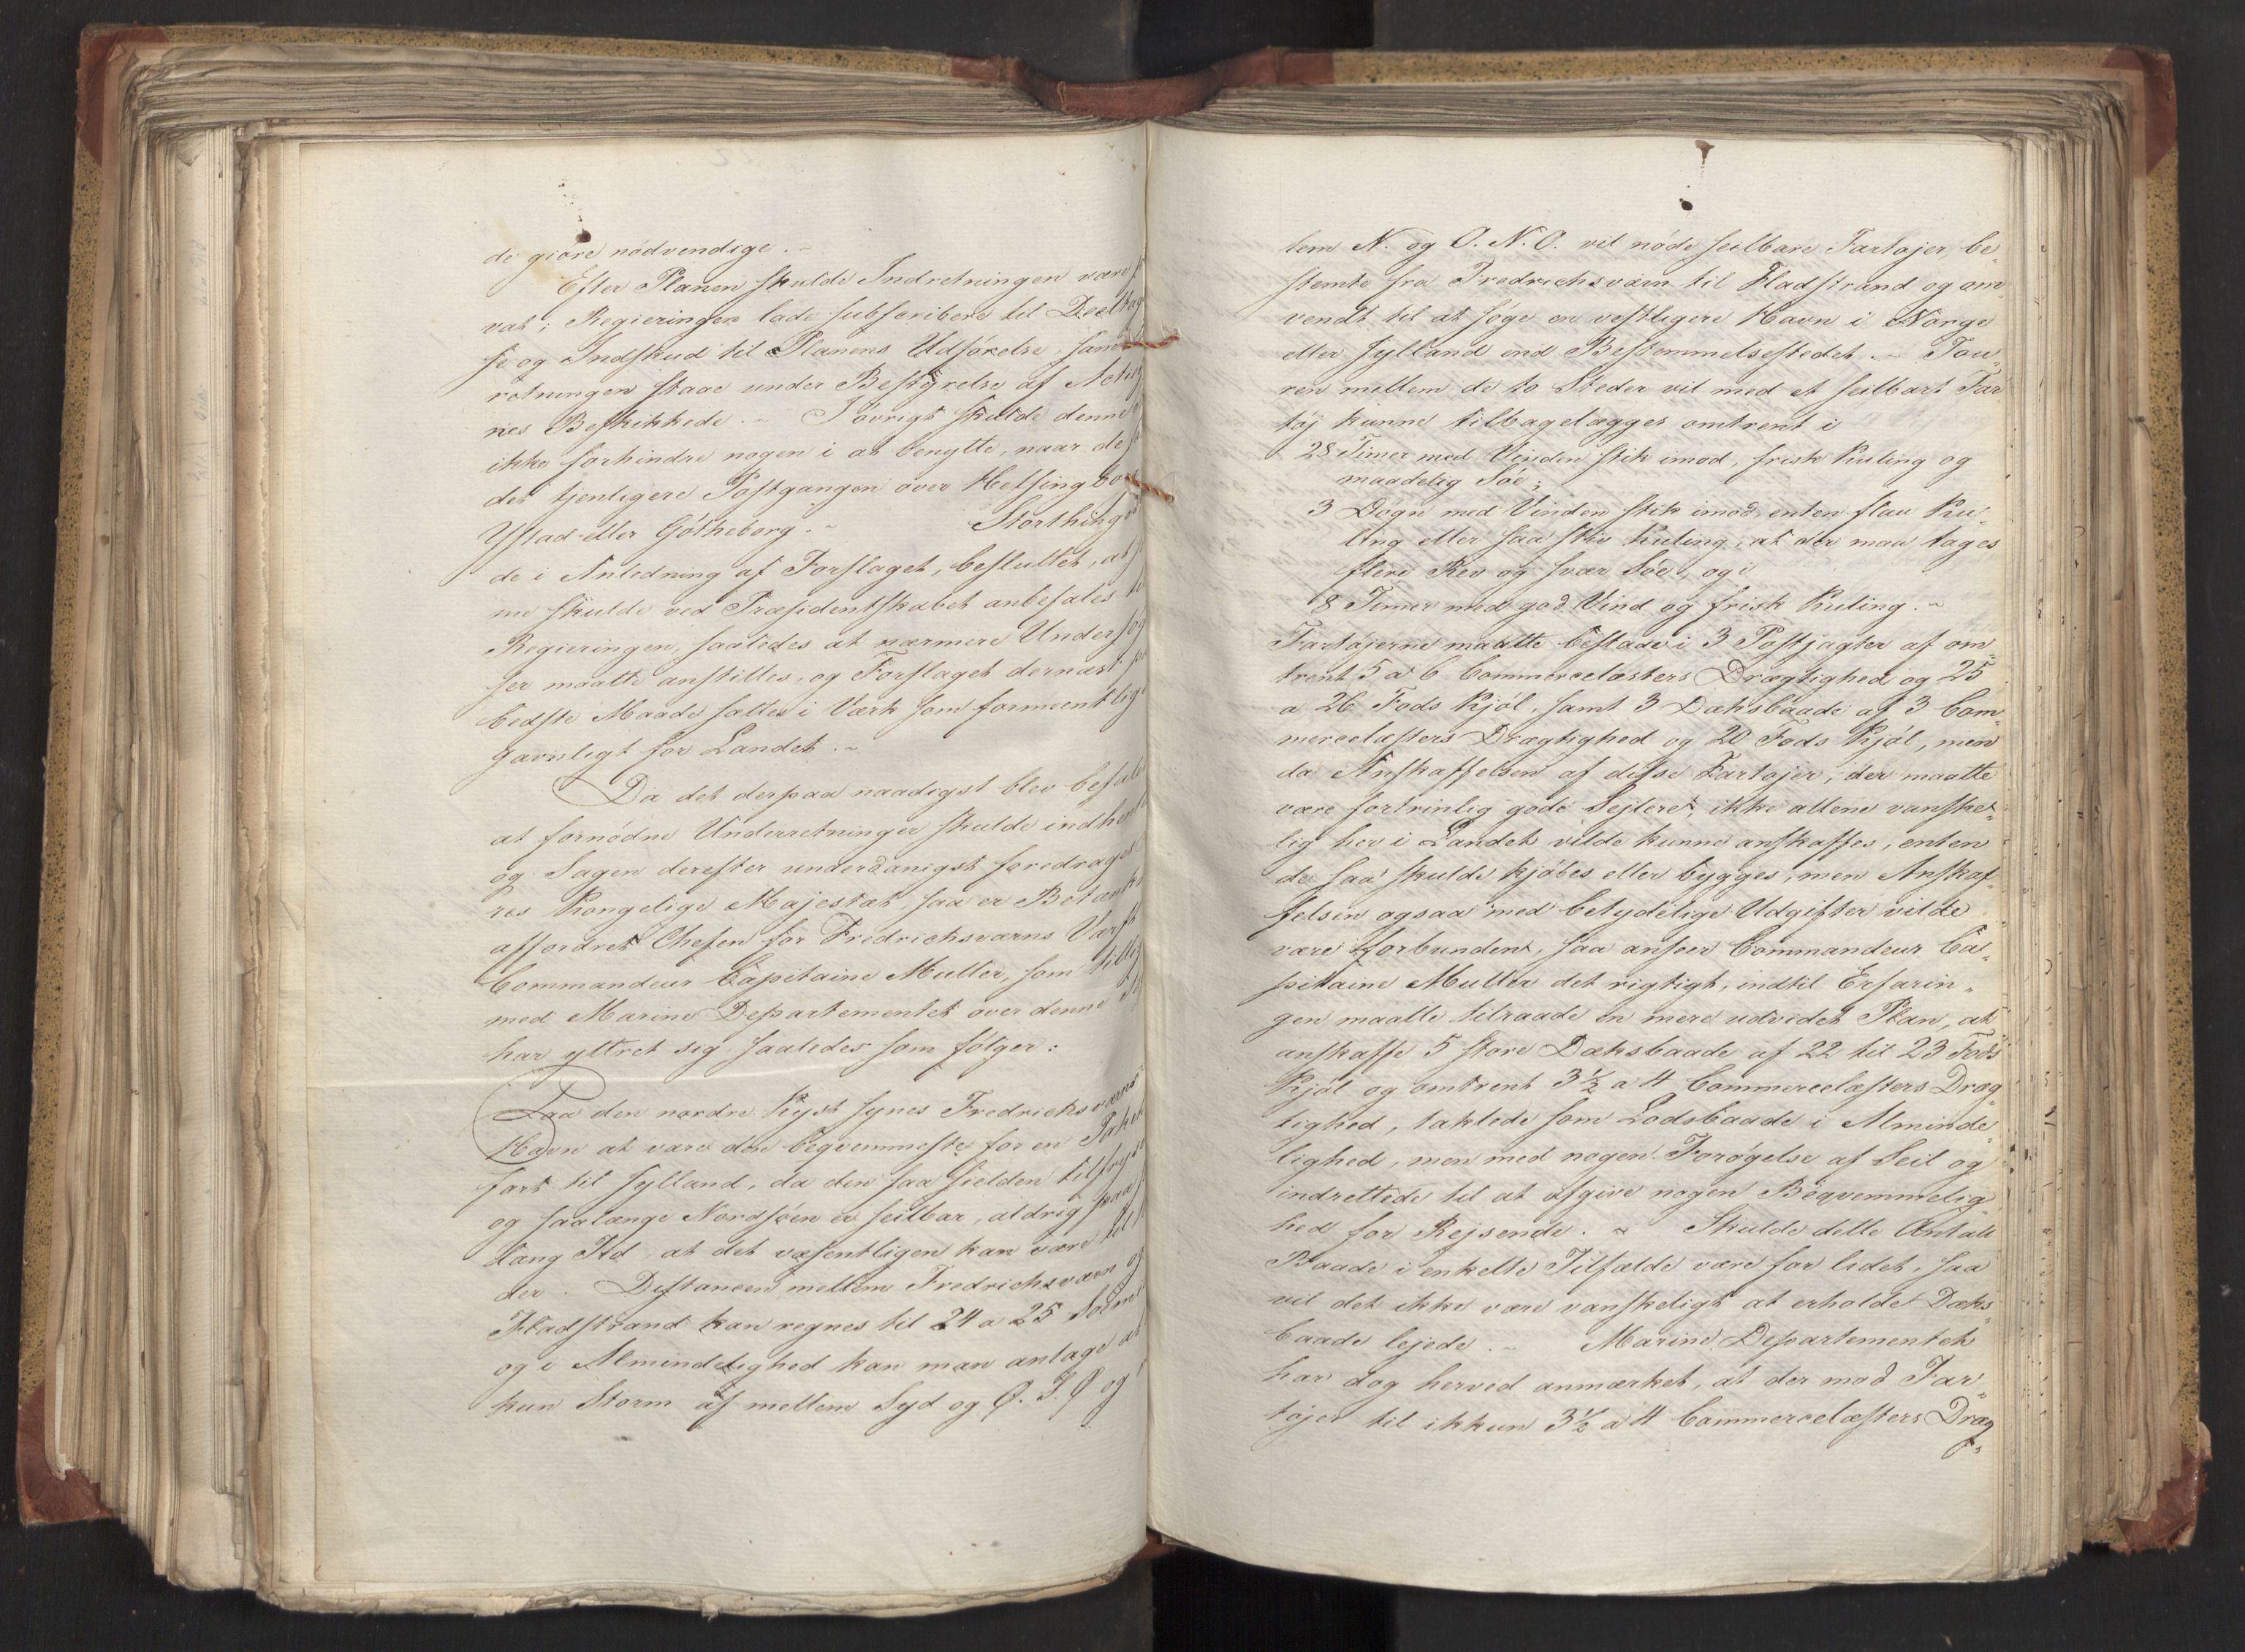 de giøre nødvendige. ~
Efter Planen skulde Indretningen være
vat; Regieringen lade subscribere til Deeltag
se og Indskud til Planens Udførelse, samt
retningen staae under Bestyrelse af Actio
nes Beskikkede. ~ I øvrigt skulde denne
ikke forhindre nogen i at benytte, naar de
det tjenligere Postgangen over Helsingbor
Ystad eller Gøtheborg. ~ Storthinget
de i Anledning af Forslaget, besluttet, at
ne skulde ved Præsidentskabet anbefales
Regieringen, saaledes at nærmere Undersøg
ser maatte anstilles, og Forslaget dernæst
bedste Maade sættes i Værk som formeentlig
gavnligt for Landet. ~
Da det derpaa naadigst blev befale
at fornødne Underretninger skulde indhent
og Sagen derefter underdanigst foredrages
res Kongelige Majestæt, saa er Betænkn
affordret Chefen for Fredrichsværns Værft
Commandeur Capitaine Müller, som tillig
med Marine Departementet over denne
har yttret sig saaledes som følger:
Paa den nordre Kyst synes Fredrichsværns
Havn at være den beqvemmeste for en Pakket
fart til Jylland, da den saa sielden tilfryse
og saalænge Nordsøen er seilbar, aldrig paa
lang Tid, at det væsentligen kan være til
der. Distancen mellem Fredrichsværn og
Fladstrand kan regnes til 24 a 25 Sømi
og i Almindelighed kan man antage at
kun Storm af mellem Syd og O. S. O og
lem N. og O. N. O. vil nøde seilbare Fartøjer, be„
stemte fra Fredrichsværn til Fladstrand og om„
vendt til at søge en vestligere Havn i Norge
eller Jylland end Bestemmelsesstedet. ~ Tou„
ren mellem de to Steder vil med et seilbart Far
tøj kunne tilbagelægges omtrent i
28 Timer med Vinden stik imod, frisk Kuling og
maadelig Søe;
3 Døgn med Vinden stik imod, enten flau Ku„
ling eller saa stiv Kuling, at der maa tages
flere Rev og svær Søe, og i
8 Timer med god Vind og frisk Kuling. ~
Fartøjerne maatte bestaae i 3 Postjagter af om„
trent 5 a 6 Commercelæsters Drægtighed og 25
a 26 Fods Kjøl, samt 3 Dæksbaade af 3 Com„
mercelæsters Drægtighed og 20 Fods Kjøl, men
da Anskaffelsen af disse Fartøjer, der maatte
være fortrinlig gode Sejlere, ikke allene vanske„
lig her i Landet vilde kunne anskaffes, enten
de saa skulde kjøbes eller bygges, men Anskaf„
felsen ogsaa med betydelige Udgifter vilde
være forbunden, saa anseer Commandeur Ca„
pitaine Müller det rigtigt, indtil Erfarin„
gen maatte tilraade en mere udvidet Plan, at
anskaffe 5 store Dæksbaade af 22 til 23 Fods
Kjøl og omtrent 3½ a 4 Commercelæsters Dræg„
tighed, taklede som Lodsbaade i Alminde„
lighed, men med nogen Forøgelse af Seil og
indrettede til at afgive nogen Beqvemmelig„
hed for Rejsende. ~ Skulde dette Antal
Baade i enkelte Tilfælde være for lidet, saa
vil det ikke være vanskeligt at erholde Dæks„
baade lejede. ~ Marine Departementet
har dog herved anmærket, at der mod Far„
tøjer til ikkun 3½ a 4 Commercelæsters Dræg„